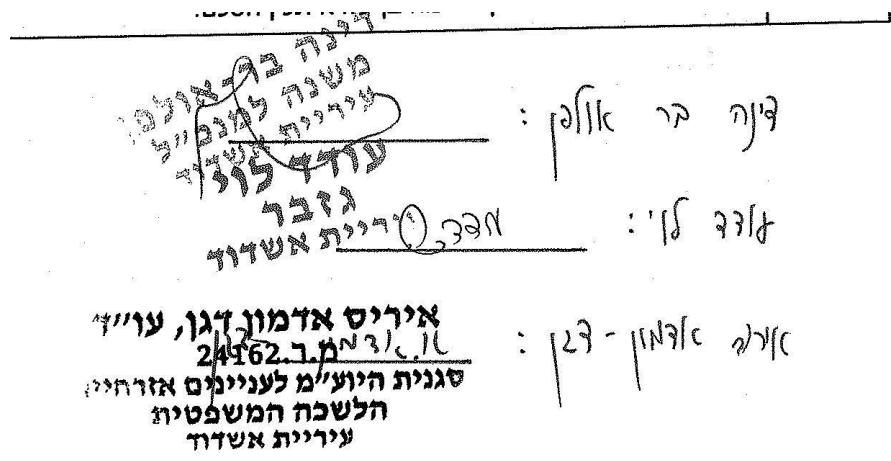 דינה בר אולפן :
דינה בר-אולפן
משנה למנכ"ל
עיריית אשדוד
עודד לוי :
עודד לוי
גזבר
עיריית אשדוד
אדמון-דגן :
איריס אדמון דגן, עו"ד
מ.ר.24162
סגנית היועמ"ש לעניינים אזרחיים
הלשכה המשפטית
עיריית אשדוד